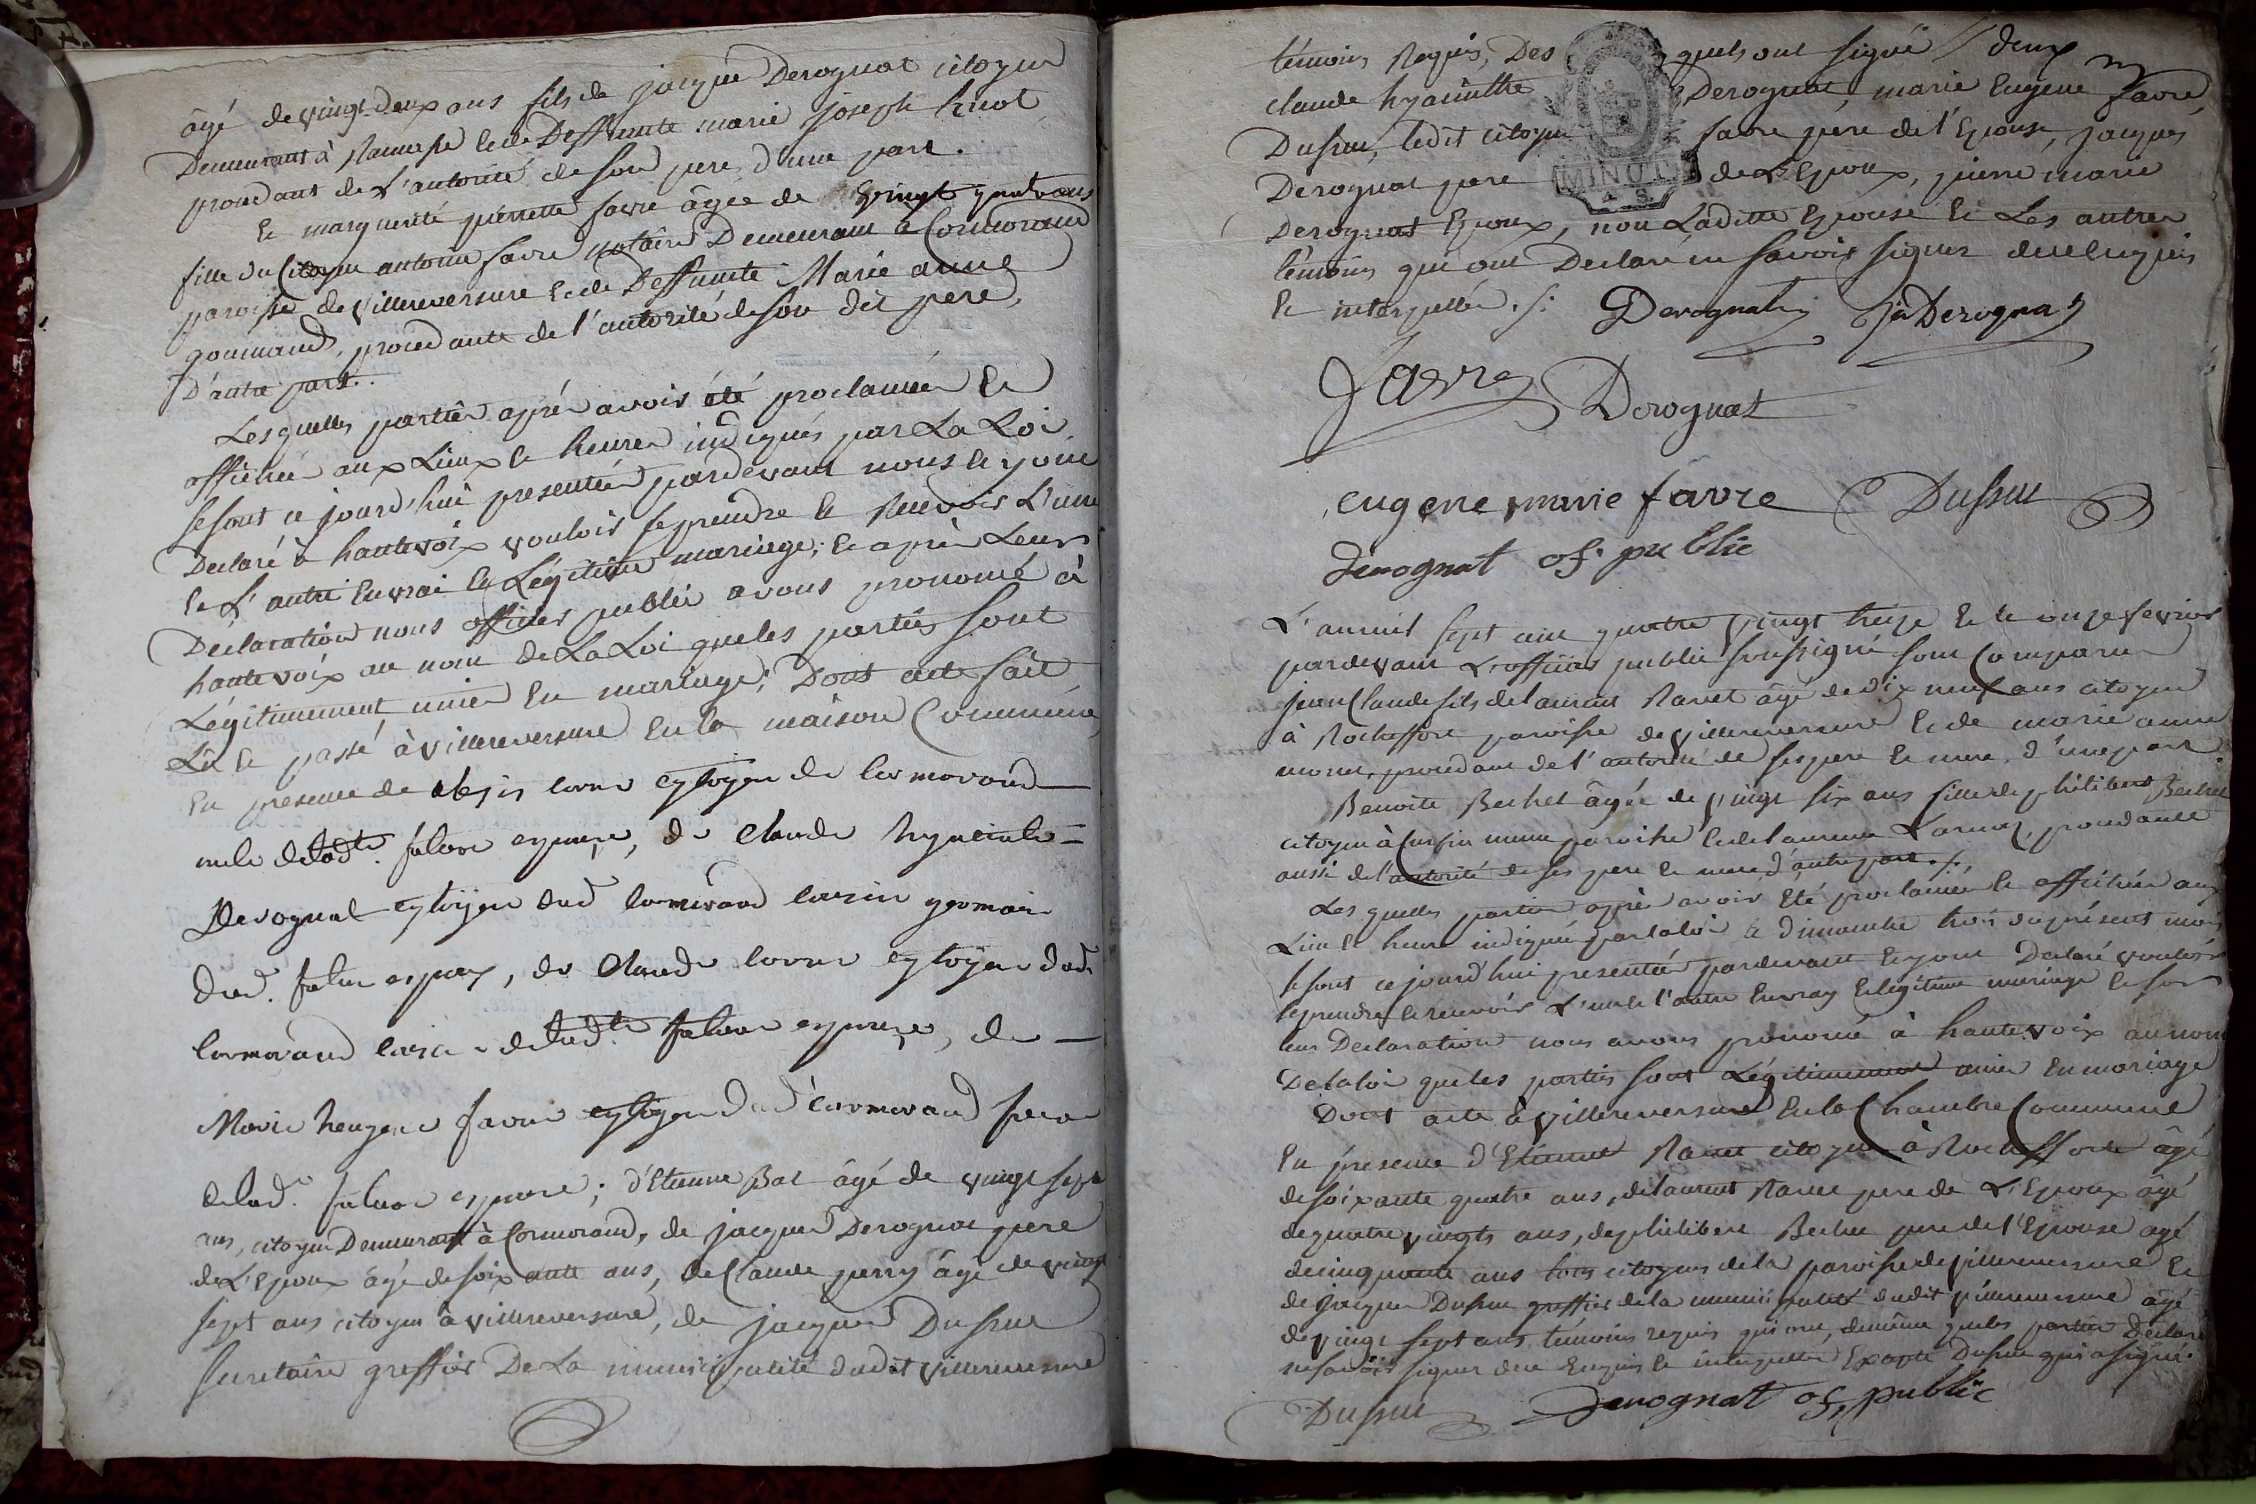 âgé de vingt deux ans fils de jacque Derognat citoyen
Demeurant à et de Deffunte marie joseph
procedant de L'autorité de son pere, d'une part.
Et marguerite pierrette favre âgée de vingt quatre ans
fille du Citoyen antoine favre notaire Demeurant a Cormorand
paroisse de villereversure et de Deffunte Marie anne
goumand, procedante de l'autorité de son dit pere,
D'autre part.
Lesquelles parties aprés avoir été proclamées Et
affichées aux Lieux Et heures indiqués par La Loi
se sont ce jourd'hui presentées pardevant nous et y ont
Declaré à haute voix vouloir se prendre Et Recevoir L'une
Et L'autre En vrai Et Légitime mariage; Et aprés Leurs
Déclaration nous officier public avons prononcé à
haute voix au nom de La Loi que les parties sont
Légitimement unies En mariage; Dont acte fait
Lû Et passé à villereversure En la maison Commune
En presence de citoyen de cormorand
de lad.te future epouse, de Claude hyacinte
Derognat cytoyen dud cormorand cousin germain
dud. futur epoux, de Claude cytoyen dud
cormorand cousin de lad.te future epouse, de
Marie heugene favre cytoyen dud Cormorand frere
de lad. future epouse; d'Etienne Bat âgé de vingt sept
ans, citoyen Demeurant à Cormorand, de jacques Derognat pere
de L'Epoux âgé de soixante ans, de Claude perry âgé de vingt
sept ans citoyen à villereversure, de jacques Dussuc
secretaire greffier De La municipalité dudit villereversure
témoins Requis, Des quels ont signé deux
claude hyacinthe Derognat, marie Eugene favre,
Dussuc, ledit citoyen favre pere de l'Epouse, jacques
Derognat pere de L'Epoux, pierre marie
Derognat Epoux, non Laditte Epouse Et Les autres
témoins qui ont Declaré ne savoir signer de ce enquis
Et interpellés ./.
MINUT
Derognat jh Derognat
favre
Derognat
eugene marie favre Dussuc
Derognat of. public
L'an mil sept cent quatre vingt treize Et le onze fevrier
pardevant L'officier public soussigné sont Comparus
jean Claude fils de laurent Ravet âgé de dix neuf ans citoyen
à Rocheffort paroisse de villereversure Et de marie anne
procedant de l'autorité de ses pere Et mere, d'une part.
Benoite Bechet âgée de vingt six ans fille de philibert Bechet
citoyen à Cursin même paroisse Et de laurence procedante
aussi de l'autorité de ses pere Et mere d'autre part ./.
Les quelles parties aprés avoir été proclamées Et affichées aux
Lieu Et heure indiqués par la loi le dimanche trois du présent mois
se sont ce jourd'hui presentées pardevant Et y ont Declaré vouloir
se prendre Et recevoir L'une Et l'autre En vray Et légitime mariage Et sur
leur Declaration nous avons prononcé à haute voix au nom
De la loi que les parties sont Légitimement unies En mariage
Dont acte à villereversure En la Chambre Commune
En présence d'Etienne Ravet citoyen à Rocheffort âgé
de soixante quatre ans, de laurent Ravet pere de L'Epoux âgé
de quatre vingts ans, de philibert Bechet pere de l'Epouse agé
de cinquante ans tous citoyens de la paroisse de villereversure Et
de jacques Dussuc greffier de la municipalité dudit villereversure âgé
de vingt sept ans témoins requis qui ont, de même que les parties Declaré
ne savoir signer de ce Enquis Et interpellés Excepté Dussuc qui a signé.
Dussuc Derognat of. public